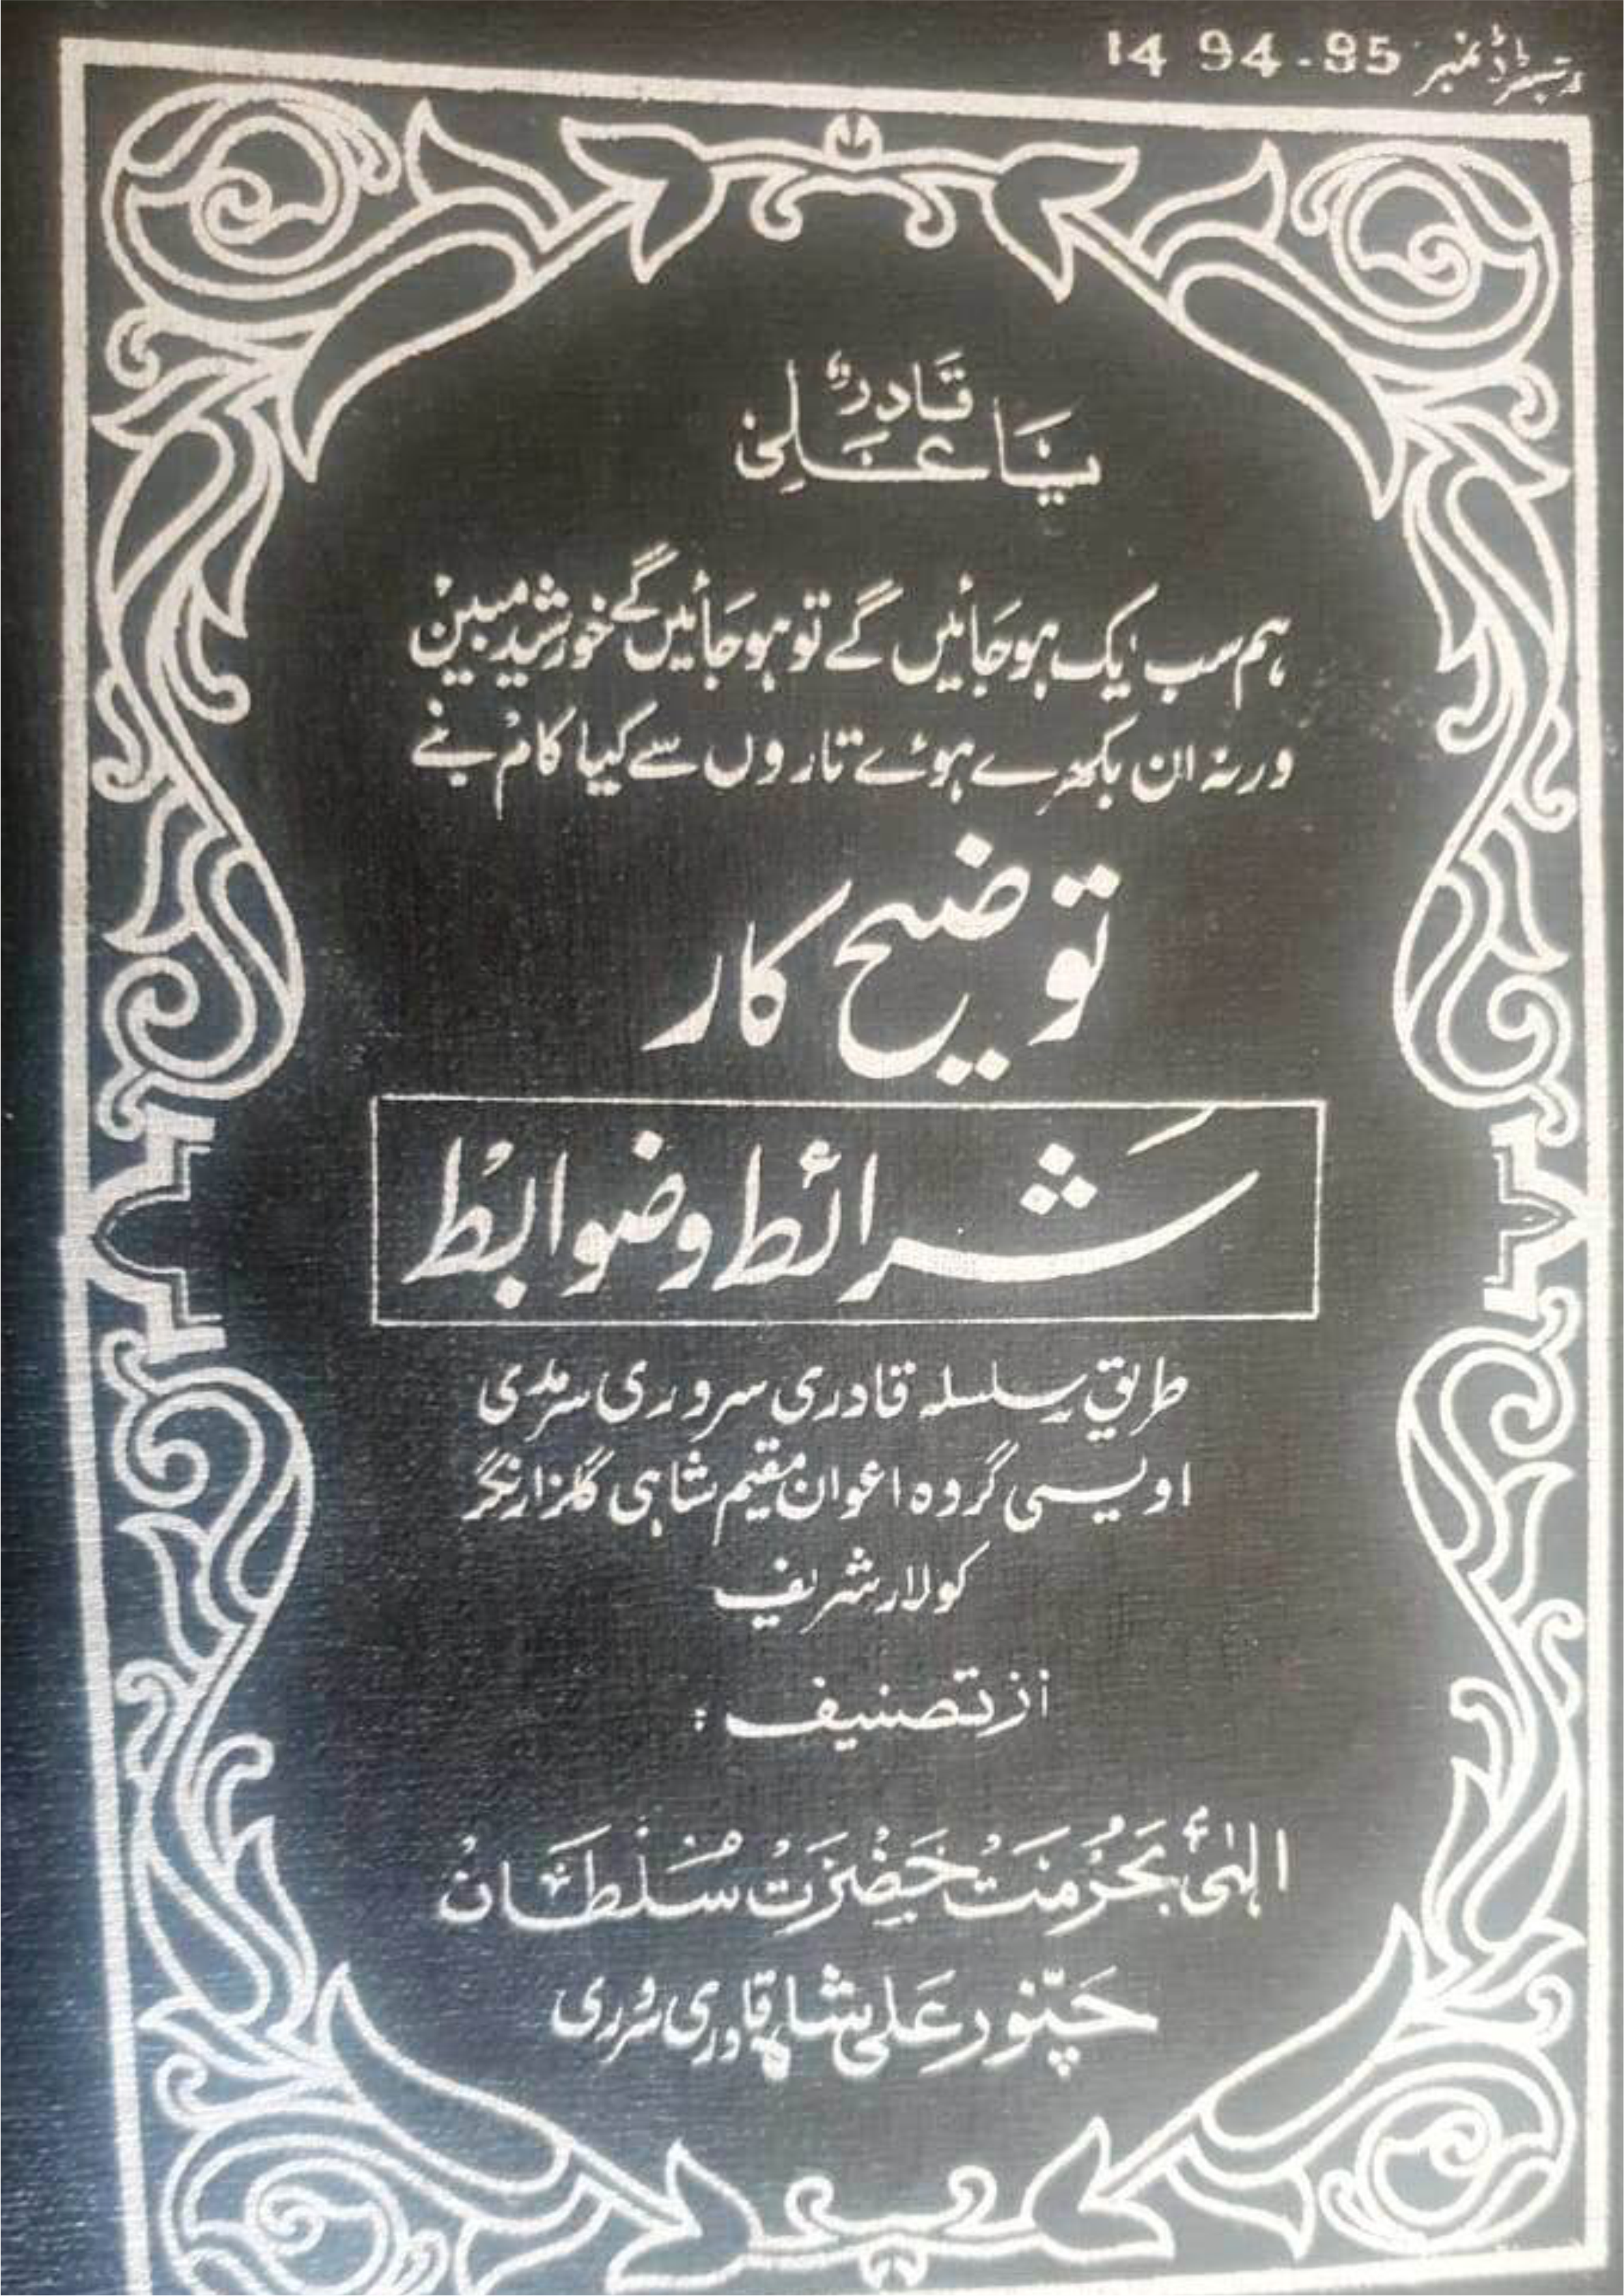 رجسٹرڈ نمبر 95-94 14
قادر
یا علی
ہم سب ایک ہو جائیں گے تو ہو جائیں گے خورشید مبین
ورنہ ان بکھرے ہوئے تاروں سے کیا کام بنے
توضیح کار
شرائط و ضوابط
طریق سلسلہ قادری سروری سرمدی
اویسی گروہ اعوان مقیم شاہی گلزار نگر
کولار شریف
از تصنیف :
الٰہی بحرمت حضرت سلطان
نور علی شاہ قادری سروری